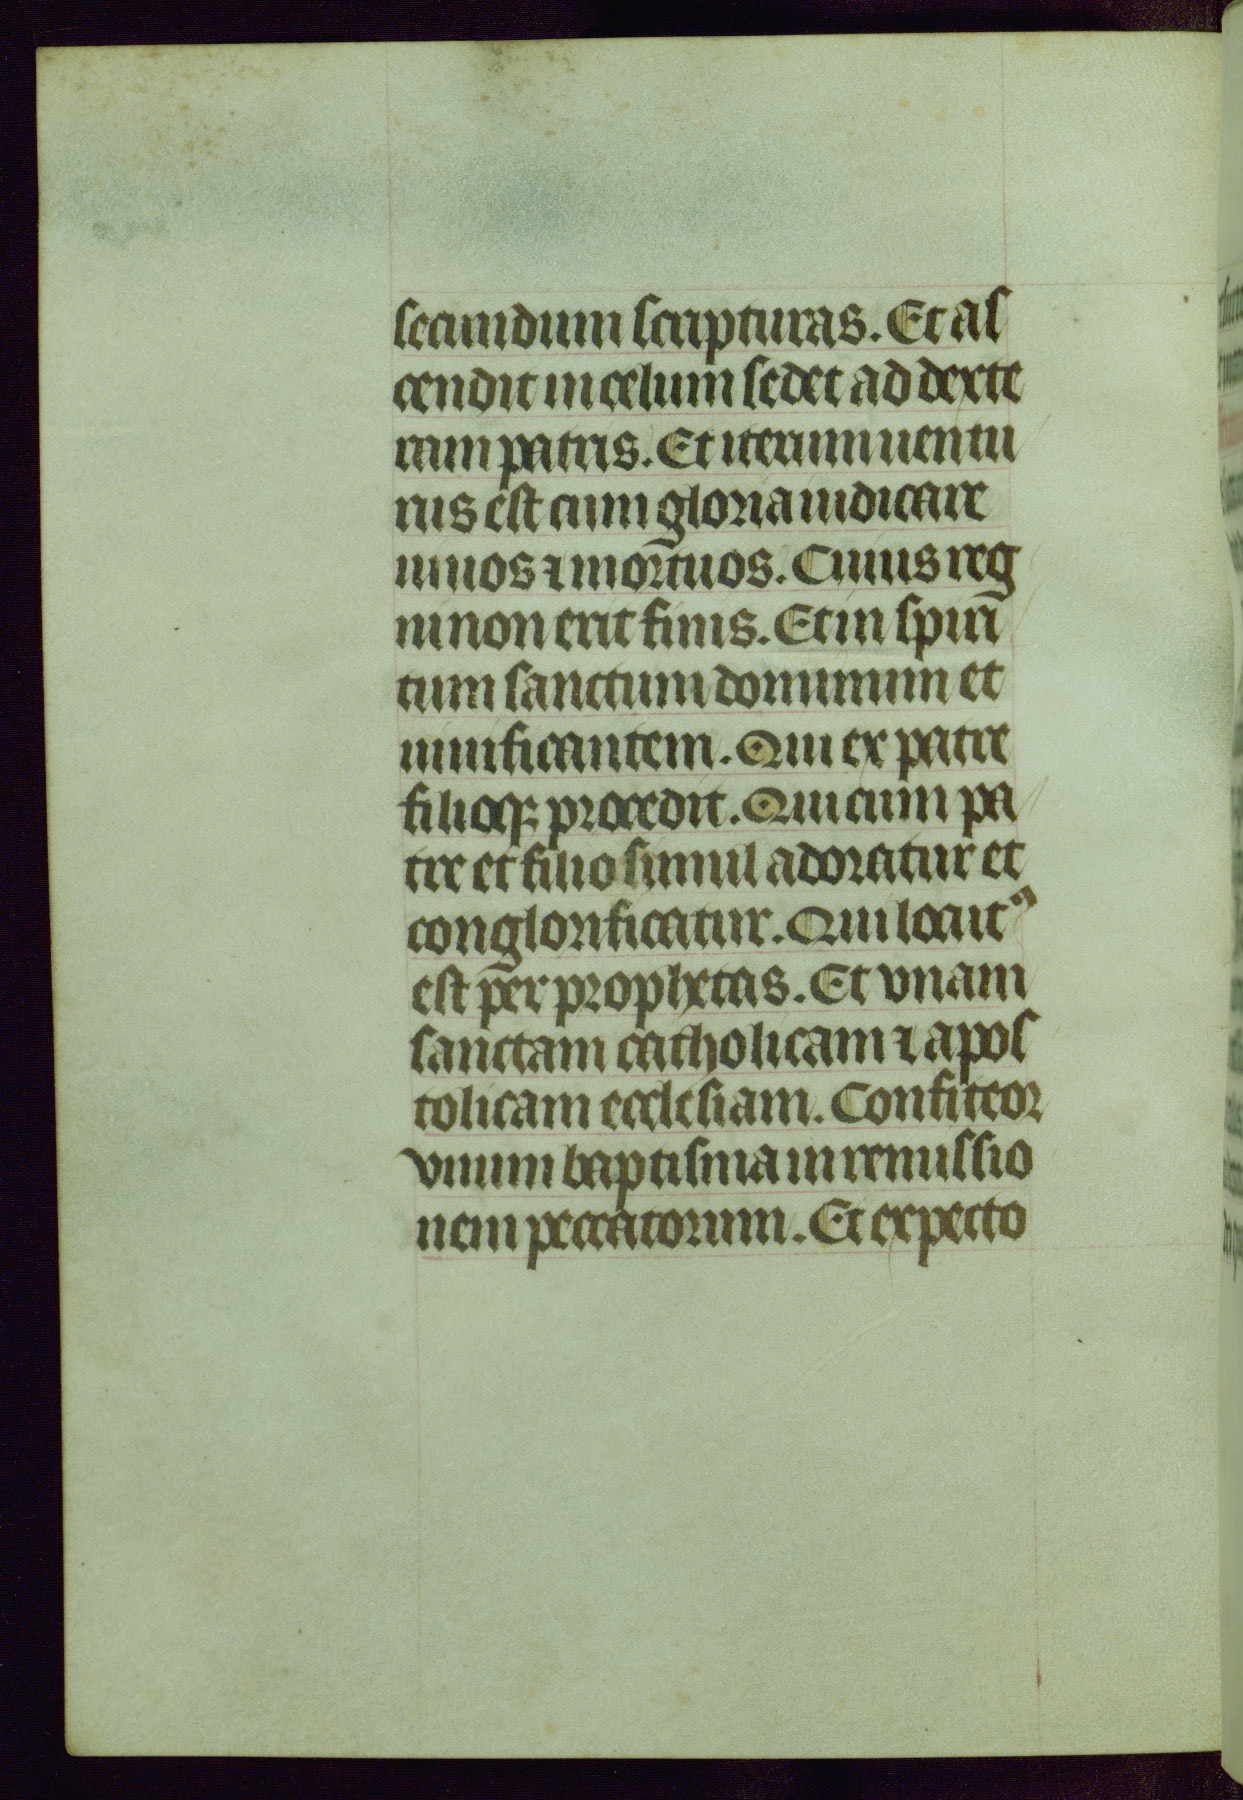 secundum scripturas. Et as
cendit in celum sedet ad dexte
ram patris. Et iterum uentu
rus est cum gloria iudicare
uiuos ⁊ mortuos. Cuius reg
ni non erit finis. Et in spiri
tum sanctum dominum et
uiuificantem. Qui ex patre
filioqꝫ procedit. Qui cum pa
tre et filio simul adoratur et
conglorificatur. Qui locutꝰ
est per prophetas. Et vnam
sanctam catholicam ⁊ apos
tolicam ecclesiam. Confiteor
vnum baptisma in remissio
nem peccatorum. Et expecto